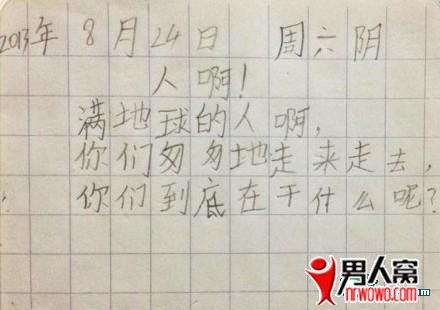 2013年 8月24日 周六阴
人啊!
满地球的人啊,
你们匆匆地走来走去,
你们到底在干什么呢?
男人窝
nrwowo.com